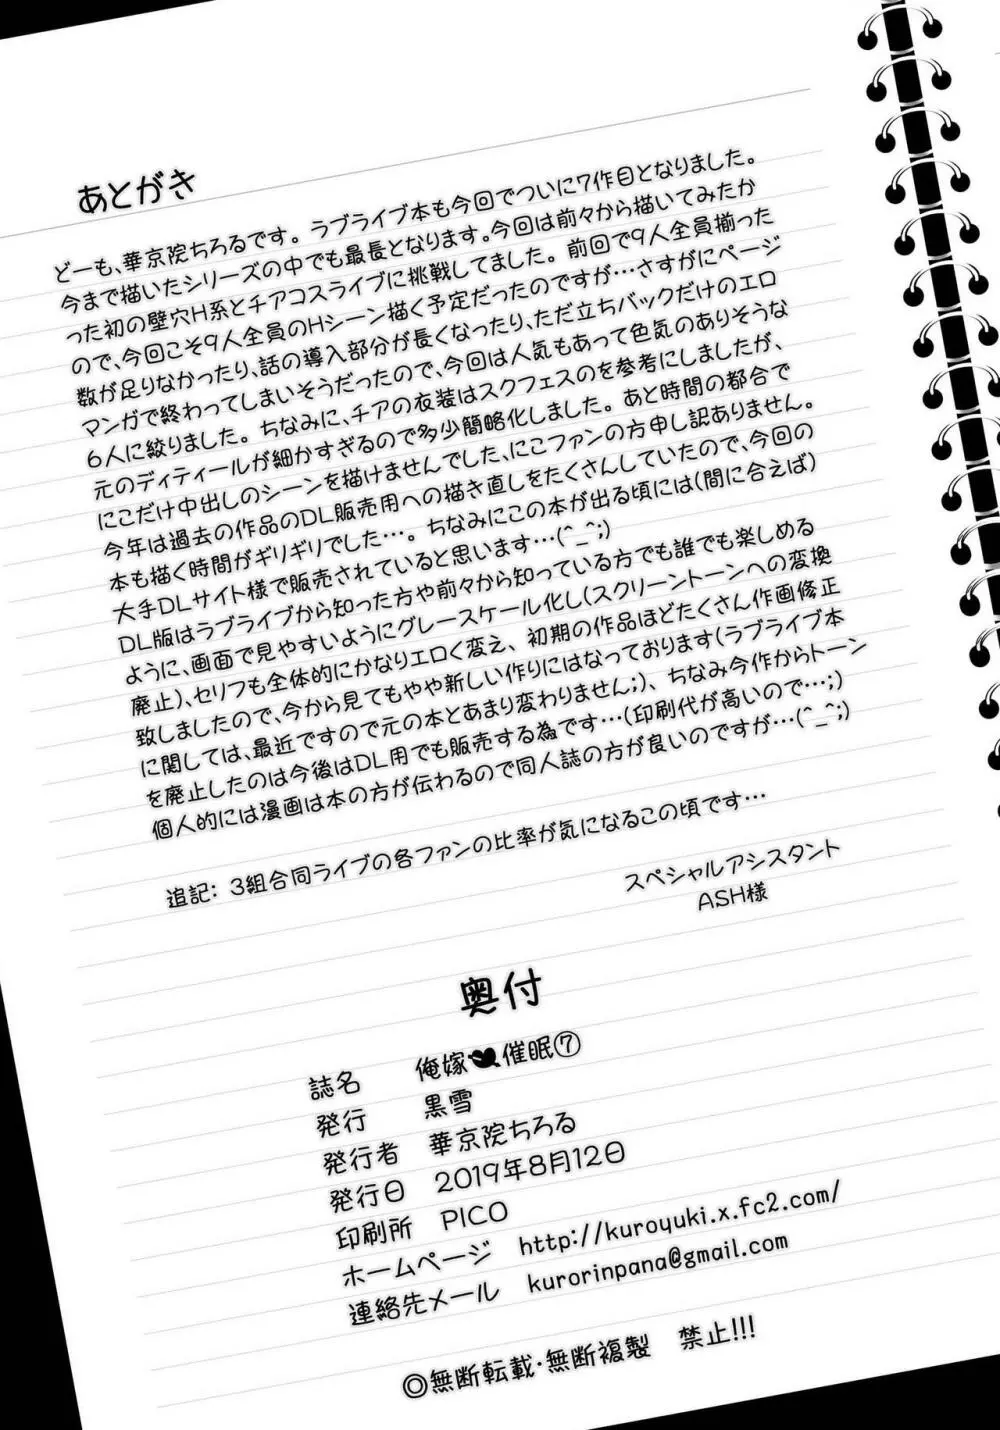 あとがき
どーも、華京院ちろるです。ラブライブ本も今回でついに7作目となりました。
今まで描いたシリーズの中でも最長となります。今回は前々から描いてみたか
った初の壁穴H系とチアコスライブに挑戦してました。前回で9人全員揃った
ので、今回こそ9人全員のHシーン描く予定だったのですが…さすがにページ
数が足りなかったり、話の導入部分が長くなったり、ただ立ちバックだけのエロ
マンガで終わってしまいそうだったので、今回は人気もあって色気のありそうな
6人に絞りました。ちなみに、チアの衣装はスクフェスのを参考にしましたが、
元のディティールが細かすぎるので多少簡略化しました。あと時間の都合で
にこだけ中出しのシーンを描けませんでした、にこファンの方申し訳ありません。
今年は過去の作品のDL販売用への描き直しをたくさんしていたので、今回の
本も描く時間がギリギリでした…。ちなみにこの本が出る頃には(間に合えば)
大手DLサイト様で販売されていると思います…(^_^;)
DL版はラブライブから知った方や前々から知っている方でも誰でも楽しめる
ように、画面で見やすいようにグレースケール化し(スクリーントーンへの変換
廃止)、セリフも全体的にかなりエロく変え、初期の作品ほどたくさん作画修正
致しましたので、今から見てもやや新しい作りにはなっております(ラブライブ本
に関しては、最近ですので元の本とあまり変わりません;)、ちなみ今作からトーン
を廃止したのは今後はDL用でも販売する為です…(印刷代が高いので…;)
個人的には漫画は本の方が伝わるので同人誌の方が良いのですが…(^_^;)
追記: 3組合同ライブの各ファンの比率が気になるこの頃です…
スペシャルアシスタント
ASH様
奥付
誌名 俺嫁催眠⑦
発行 黒雪
発行者 華京院ちろる
発行日 2019年8月12日
印刷所 PICO
ホームページ http://kuroyuki.x.fc2.com/
連絡先メール kurorinpana@gmail.com
◎無断転載・無断複製 禁止!!!